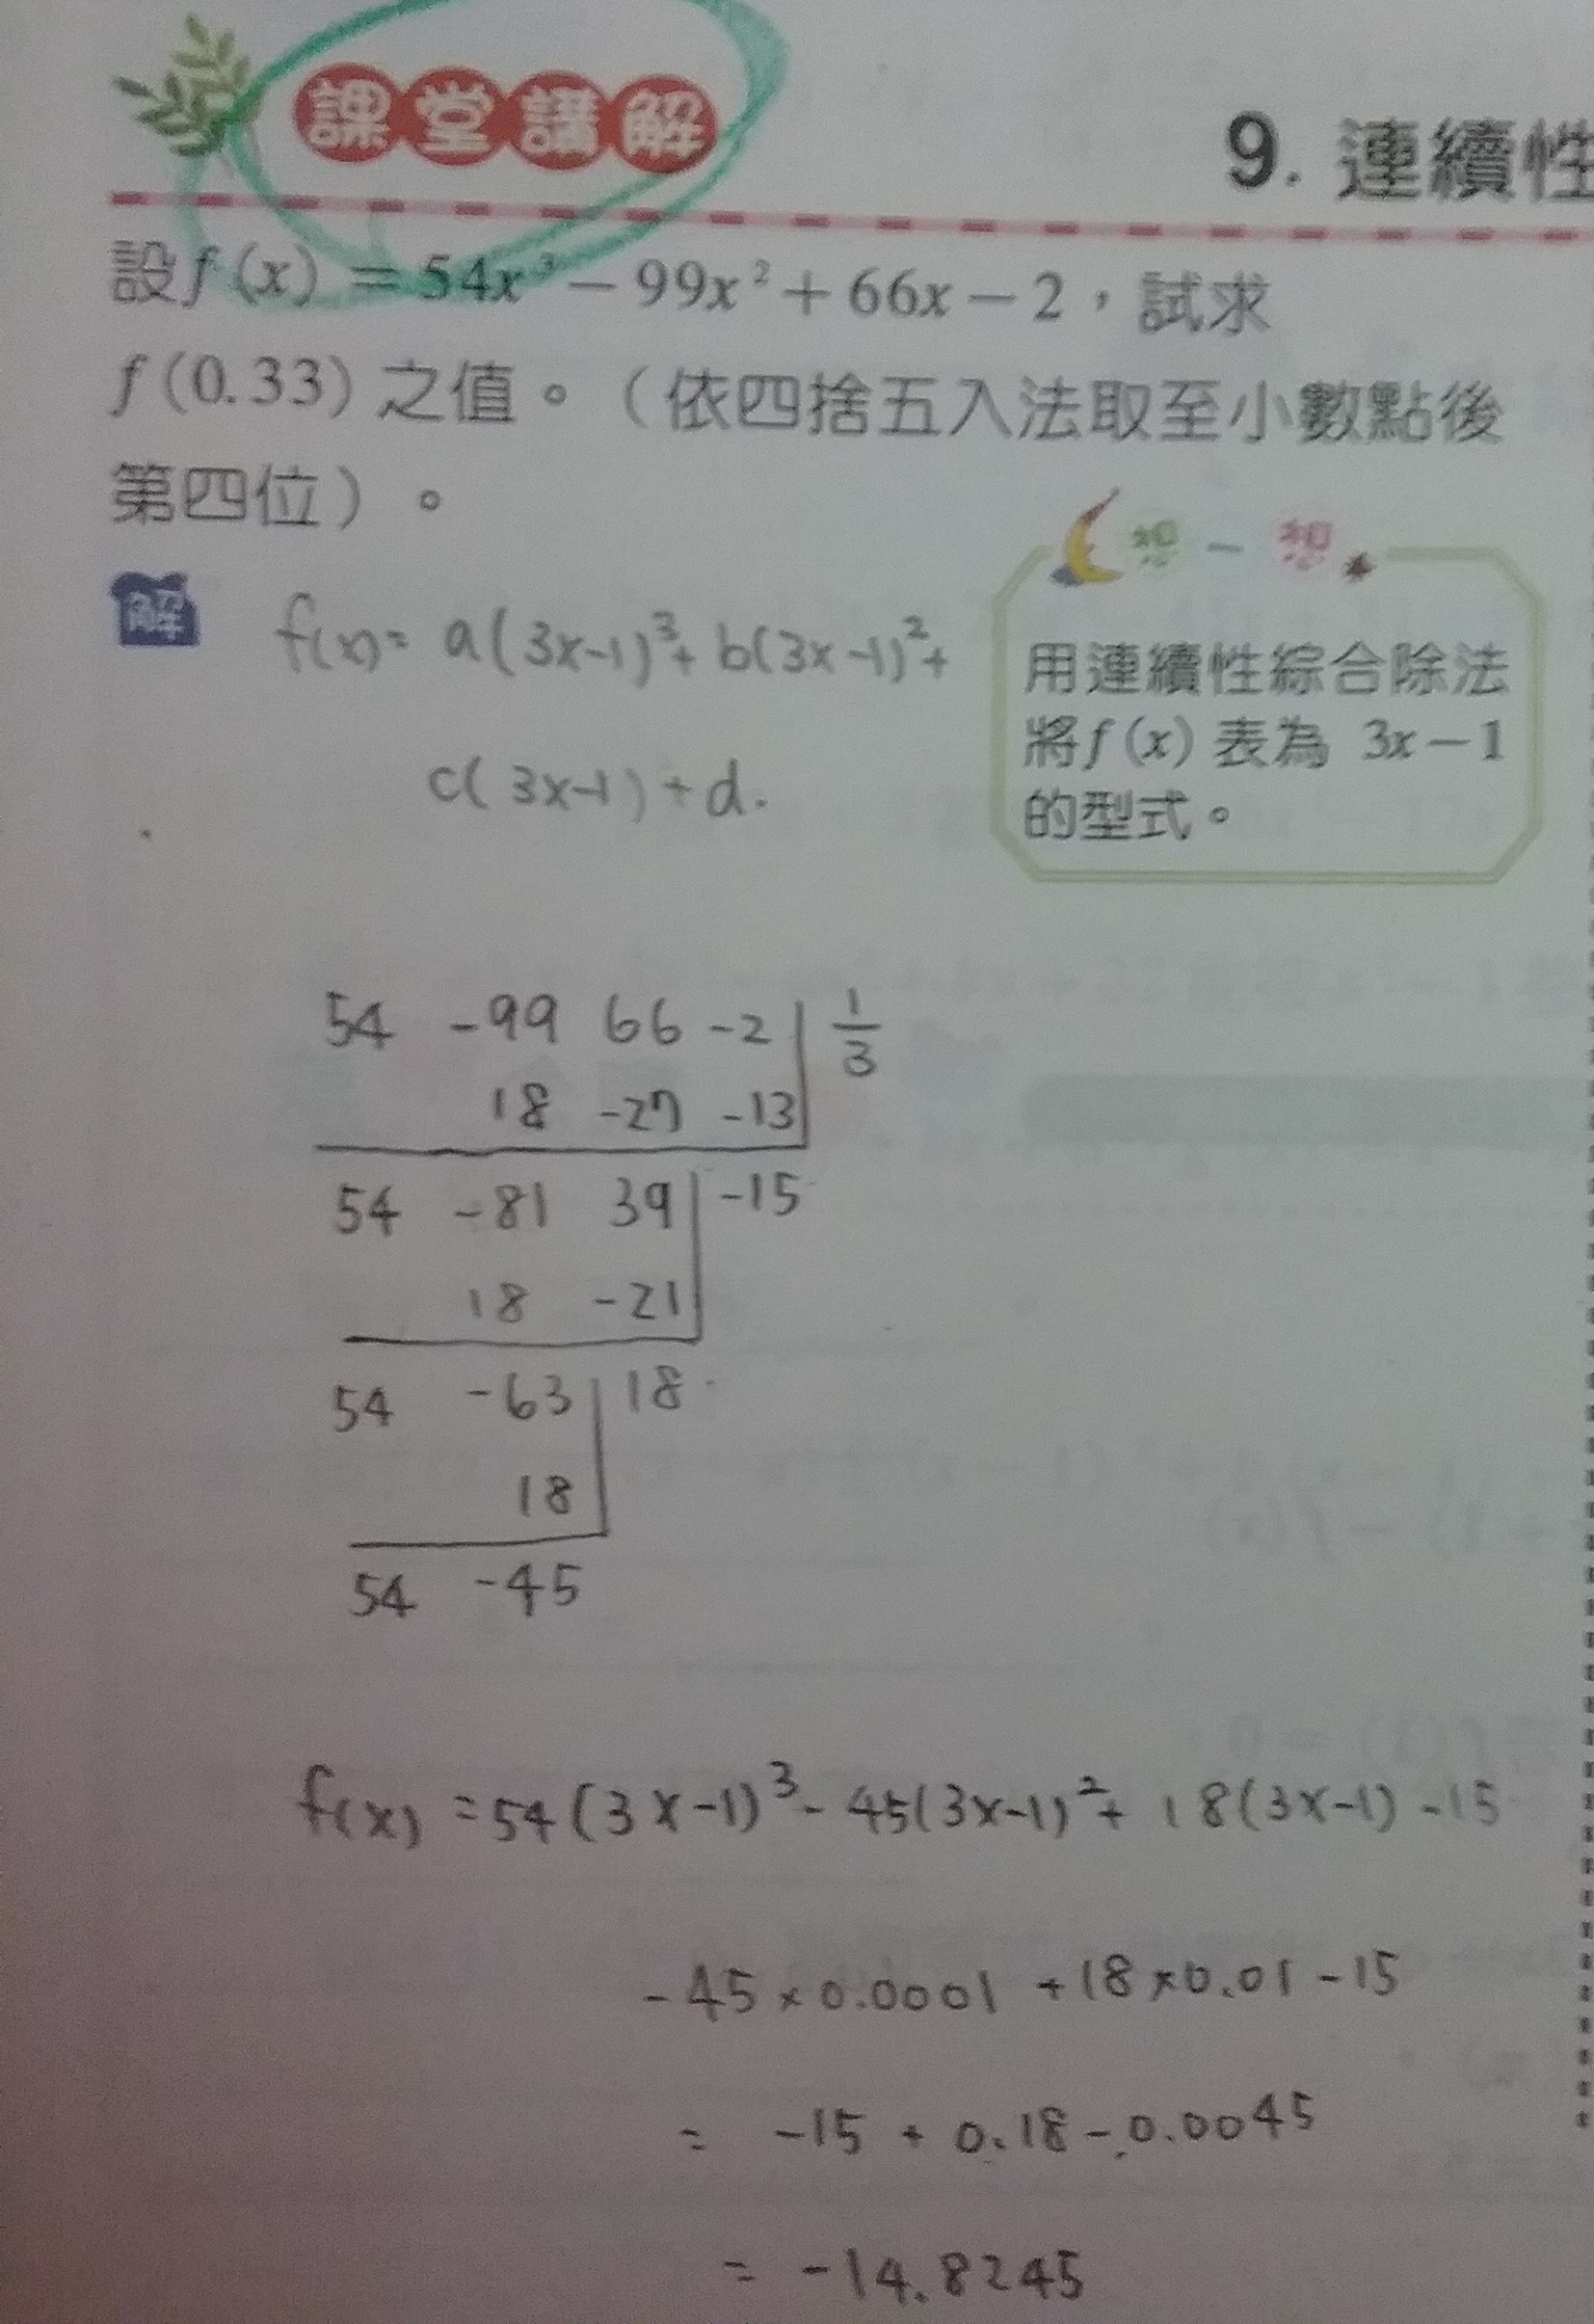 課堂講解
9. 連續性
設f(x) = 54x³ − 99x² + 66x − 2,試求
f(0.33)之值。(依四捨五入法取至小數點後
第四位)。
想一想
用連續性綜合除法
將f(x)表為 3x − 1
的型式。
解
f(x) = a(3x-1)³ + b(3x-1)² +
c(3x-1) + d.
54 -99 66 -2 1/3
18 -27 -13
54 -81 39 -15
18 -21
54 -63 18
18
54 -45
f(x) = 54(3x-1)³ - 45(3x-1)² + 18(3x-1) -15
-45 × 0.0001 + 18 × 0.01 - 15
= -15 + 0.18 - 0.0045
= -14.8245